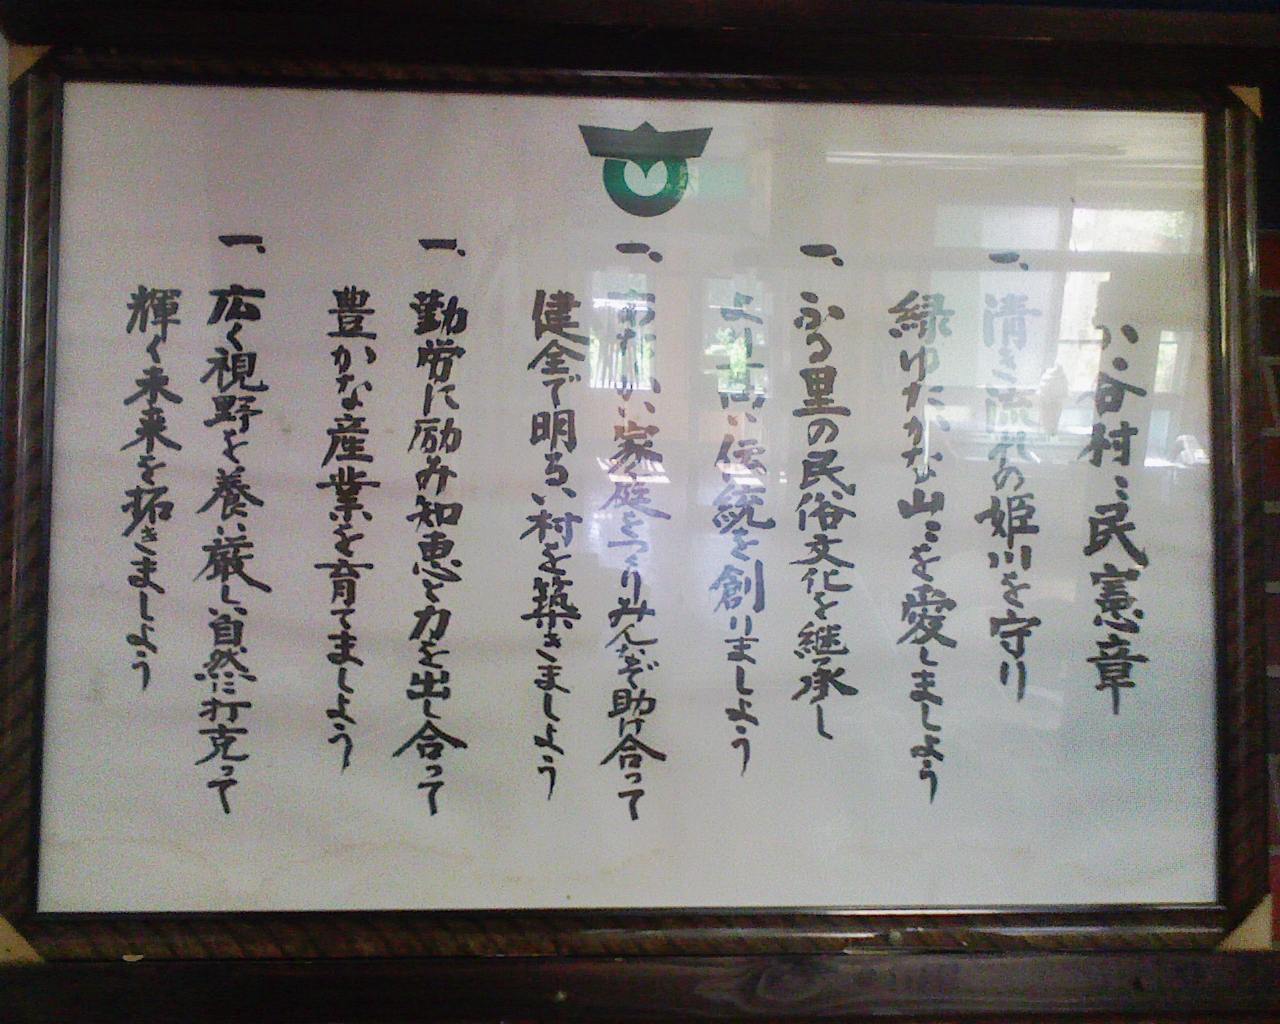 小谷村民憲章
一、清き流れの姫川を守り
緑ゆたかな山々を愛しましょう
一、ふる里の民俗文化を継承し
より高い伝統を創りましょう
一、あたたかい家庭をつくりみんなで助け合って
健全で明るい村を築きましょう
一、勤労に励み知恵と力を出し合って
豊かな産業を育てましょう
一、広く視野を養い厳しい自然に打克って
輝く未来を拓きましょう